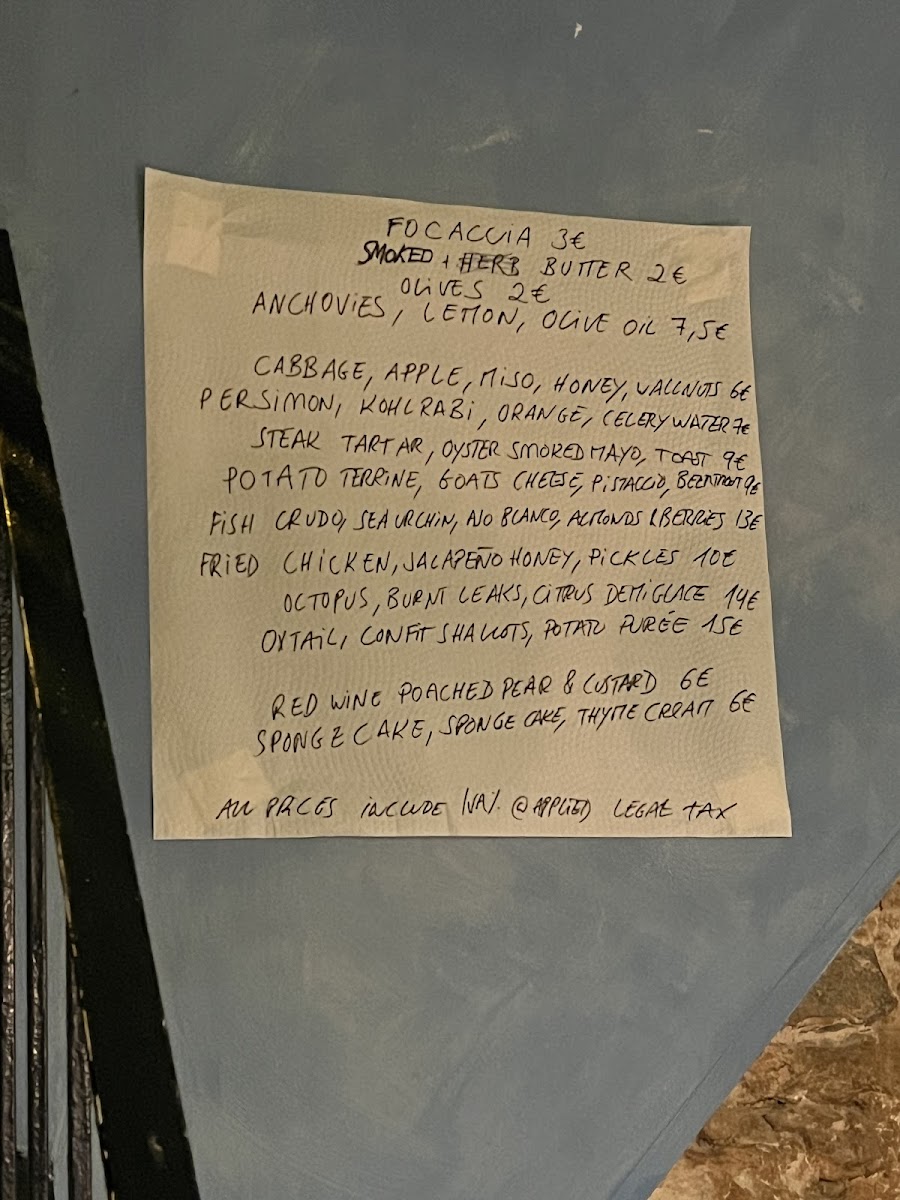 FOCACCIA 3€
SMOKED + HERB BUTTER 2€
OLIVES 2€
ANCHOVIES, LEMON, OLIVE OIL 7,5€
CABBAGE, APPLE, MISO, HONEY, WALLNUTS 6€
PERSIMON, KOHLRABI, ORANGE, CELERY WATER 7€
STEAK TARTAR, OYSTER SMOKED MAYO, TOAST 9€
POTATO TERRINE, GOATS CHEESE, PISTACCIO, BEETROOT 9€
FISH CRUDO, SEA URCHIN, AJO BLANCO, ALMONDS & BERRIES 13€
FRIED CHICKEN, JALAPEÑO HONEY, PICKLES 10€
OCTOPUS, BURNT LEAKS, CITRUS DEMIGLACE 14€
OXTAIL, CONFIT SHALLOTS, POTATO PURÉE 15€
RED WINE POACHED PEAR & CUSTARD 6€
SPONGE CAKE, SPONGE CAKE, THYME CREAM 6€
ALL PRICES INCLUDE IVA% @ APPLIED LEGAL TAX